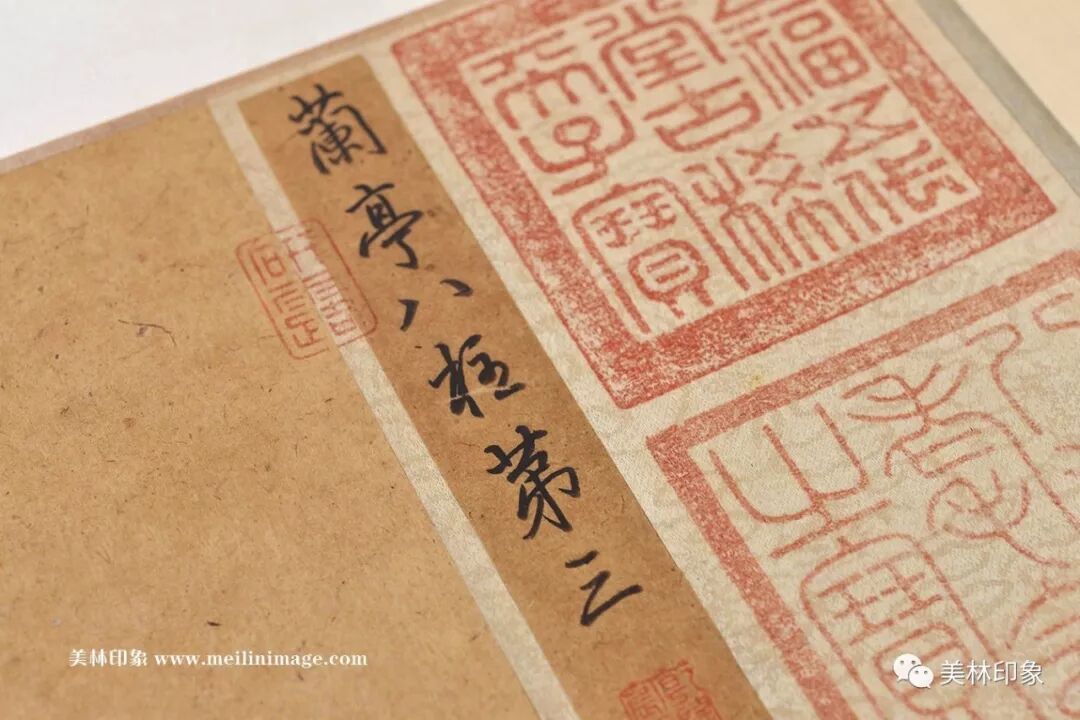 蘭亭八柱第三
福五代
堂古稀
天子寶
之寶
美林印象 www.meilinimage.com
美林印象